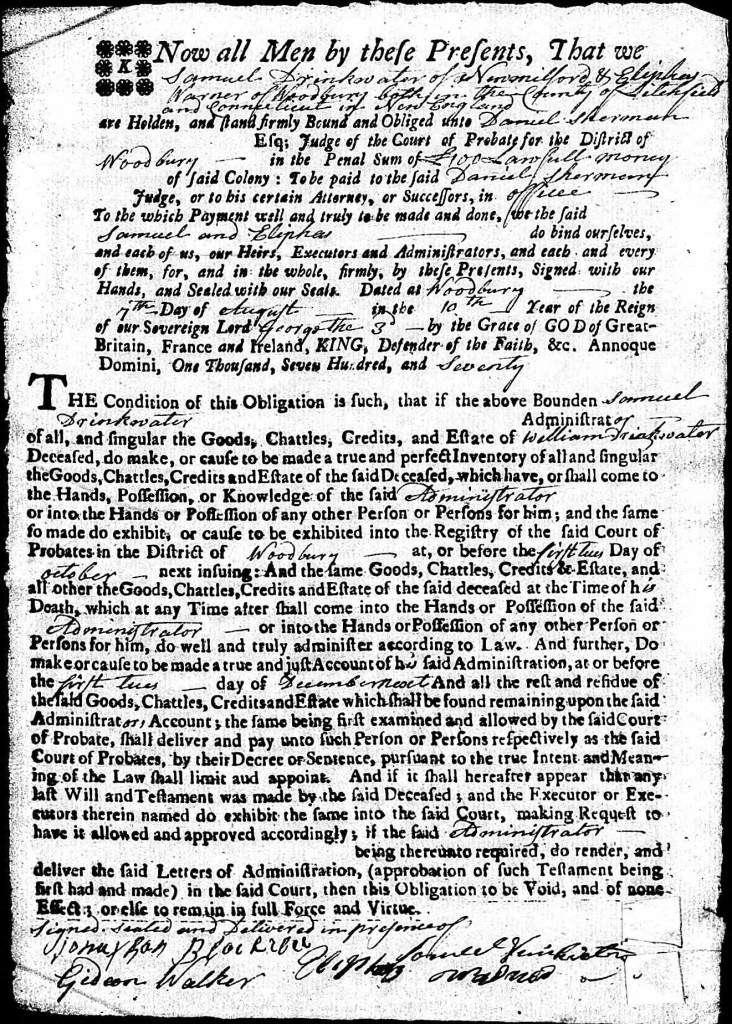 KNow all Men by theſe Preſents, That we
Samuel Drinkwater of Newmilford & Eliphas
Warner of Woodbury both in the County of Litchfield
and Connecticut in New England
are Holden, and ſtand firmly Bound and Obliged unto Daniel Sherman
Eſq; Judge of the Court of Probate for the Diſtrict of
Woodbury — in the Penal Sum of £100 Lawfull money
of ſaid Colony: To be paid to the ſaid Daniel Sherman
Judge, or to his certain Attorney, or Succeſſors, in office —
To the which Payment well and truly to be made and done, we the ſaid
Samuel and Eliphas — do bind ourſelves,
and each of us, our Heirs, Executors and Adminiſtrators, and each and every
of them, for, and in the whole, firmly, by theſe Preſents, Signed with our
Hands, and Sealed with our Seals. Dated at Woodbury — the
7th Day of August in the 10th Year of the Reign
of our Sovereign Lord George the 3d — by the Grace of GOD of Great-
Britain, France and Ireland, KING, Defender of the Faith, &c. Annoque
Domini, One Thouſand, Seven Hundred, and Seventy
THE Condition of this Obligation is ſuch, that if the above Bounden Samuel
Drinkwater Adminiſtrator
of all, and ſingular the Goods, Chattles, Credits, and Eſtate of William Drinkwater
Deceaſed, do make, or cauſe to be made a true and perfect Inventory of all and ſingular
the Goods, Chattles, Credits and Eſtate of the ſaid Deceaſed, which have, or ſhall come to
the Hands, Poſſeſſion, or Knowledge of the ſaid Administrator
or into the Hands or Poſſeſſion of any other Perſon or Perſons for him; and the ſame
ſo made do exhibit, or cauſe to be exhibited into the Regiſtry of the ſaid Court of
Probates in the Diſtrict of Woodbury — at, or before the first tues Day of
October — next inſuing: And the ſame Goods, Chattles, Credits & Eſtate, and
all other the Goods, Chattles, Credits and Eſtate of the ſaid deceaſed at the Time of his
Death, which at any Time after ſhall come into the Hands or Poſſeſſion of the ſaid
Administrator — or into the Hands or Poſſeſſion of any other Perſon or
Perſons for him, do well and truly adminiſter according to Law. And further, Do
make or cauſe to be made a true and juſt Account of his ſaid Adminiſtration, at or before
the first tues — day of December next And all the reſt and reſidue of
the ſaid Goods, Chattles, Credits and Eſtate which ſhall be found remaining upon the ſaid
Adminiſtrator, Account; the ſame being firſt examined and allowed by the ſaid Court
of Probate, ſhall deliver and pay unto ſuch Perſon or Perſons reſpectively as the ſaid
Court of Probates, by their Decree or Sentence, purſuant to the true Intent and Mean-
ing of the Law ſhall limit aud appoint. And if it ſhall hereafter appear that any
laſt Will and Teſtament was made by the ſaid Deceaſed; and the Executor or Exe-
cutors therein named do exhibit the ſame into the ſaid Court, making Requeſt to
have it allowed and approved accordingly; if the ſaid Administrator —
being thereunto required, do render, and
deliver the ſaid Letters of Adminiſtration, (approbation of ſuch Teſtament being
firſt had and made) in the ſaid Court, then this Obligation to be Void, and of none
Effect; or elſe to remain in full Force and Virtue.
Signed sealed and Delivered in presence of
Jonathan
Samuel Drinkwater
Gideon Walker
Eliphas